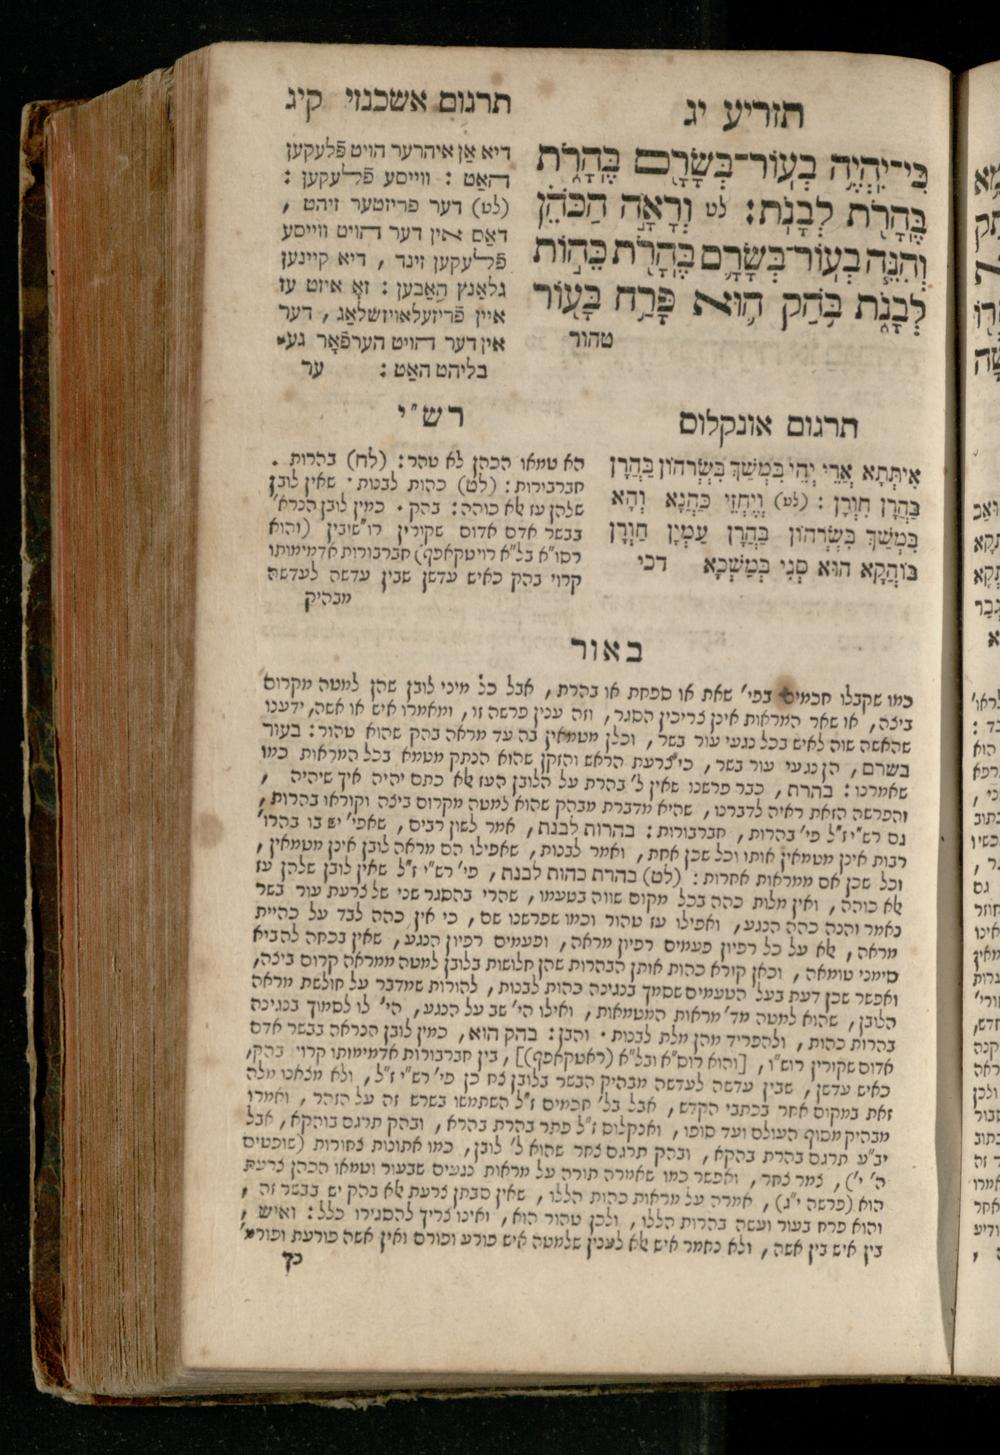 תזריע יג
תרגום אשכנזי קיג
כִּי־יִהְיֶה בְעוֹר־בְּשָׂרָם בֶּהָרֹת
בֶּהָרֹת לְבָנֹת׃ לט וְרָאָה הַכֹּהֵן
וְהִנֵּה בְעוֹר־בְּשָׂרָם בֶּהָרֹת כֵּהוֹת
לְבָנֹת בֹּהַק הוּא פָּרַח בָּעוֹר
טהור
דיא אן איהרער הויט פלעקען
האט : ווייסע פלעקען :
(לט) דער פריזטער זיהט ,
דאס אין דער הויט ווייסע
פלעקען זינד , דיא קיינען
גלאנץ האבען : זא איזט עז
איין פריזעלאויזשלאג , דער
אין דער הויט הערפאר גע־
בליהט האט : ער
תרגום אונקלוס
אִיתְּתָא אֲרֵי יְהֵי בִמְשַׁךְ בִּשְׂרְהוֹן בַּהֲרָן
בַּהֲרָן חִוְרָן : (לט) וְיֶחֱזֵי כַהֲנָא וְהָא
בִמְשַׁךְ בִּשְׂרְהוֹן בַּהֲרָן עַמְיָן חַוְרָן
בּוֹהֲקָא הוּא סְגִי בְמַשְׁכָּא דכי
רש"י
הא טמאו הכהן לא טהר : (לח) בהרות .
חברבורות : (לט) כהות לבנות . שאין לובן
שלהן עז אלא כוהה : בהק . כמין לובן הנרא'
בבשר אדם אדום שקורין רו"שיבין (והוא
רסו"א בל"א רויטקאפף) חברבורות אדמימותו
קרוי בהק כאיש עדשן שבין עדשה לעדשה
מבהיק
באור
כמו שקבלו חכמים בפי' שאת או ספחת או בהרת , אבל כל מיני לובן שהן למטה מקרום
ביצה , או שאר המראות אינן צריכין הסגר , וזה ענין פרשה זו , ומאמרו איש או אשה , ידענו
שהאשה שוה לאיש בכל נגעי עור בשר , וכלן מטמאין בה עד מראה בהק שהוא טהור : בעור
בשרם , הן נגעי עור בשר , כי צרעת הראש והזקן שהוא הנתק מטמא בכל המראות כמו
שאמרנו : בהרת , כבר פרשנו שאין ל' בהרת על הלובן העז אלא כתם יהיה איך שיהיה ,
והפרשה הזאת ראיה לדברנו , שהיא מדברת מבהק שהוא למטה מקרום ביצה וקוראו בהרות ,
גם רש"י ז"ל פי' בהרות , חברבורות : בהרות לבנת , אמר לשון רבים , שאפי' יש בו בהרו'
רבות אינן מטמאין אותו וכל שכן אחת , ואמר לבנות , שאפילו הם מראה לובן אינן מטמאין ,
וכל שכן אם ממראות אחרות : (לט) בהרת כהות לבנת , פי' רש"י ז"ל שאין לובן שלהן עז
אלא כוהה , ואין מלות כהה בכל מקום שווה בטעמו , שהרי בהסגר שני של צרעת עור בשר
נאמר והנה כהה הנגע , ואפילו עז טהור וכמו שפרשנו שם , כי אין כהה לבד על כהיית
מראה , אלא על כל רפיון פעמים רפיון מראה , ופעמים רפיון הנגע , שאין בכחה להביא
סימני טומאה , וכאן קורא כהות אותן הבהרות שהן חלושות בלובן למטה ממראה קרום ביצה ,
ואפשר שכן דעת בעל הטעמים שסמך בנגינה כהות לבנות , להורות שמדבר על חולשת מראה
הלובן , שהוא למטה מד' מראות המטמאות , ואילו הי' שב על הנגע , הי' לו לסמוך בנגינה
בהרות כהות , ולהפריד מהן מלת לבנות . והבן : בהק הוא , כמין לובן הנראה בבשר אדם
אדום שקורין רוש"ו , [והוא רוס"א ובל"א (ראטקאפף)] , בין חברבורות אדמימותו קרוי בהק ,
כאיש עדשן , שבין עדשה לעדשה מבהיק הבשר בלובן צח כן פי' רש"י ז"ל , ולא מצאנו מלה
זאת במקום אחר בכתבי הקדש , אבל בל' חכמים ז"ל השתמשו בשרש זה על הזהר , ואמרו
מבהיק מסוף העולם ועד סופו , ואנקלוס ז"ל פתר בהרת בהרא , ובהק תרגם בוהקא , אבל
יב"ע תרגם בהרת בהקא , ובהק תרגם צחר שהוא ל' לובן , כמו אתונות צחורות (שופטים
ה' י') , צמר צחר , ואפשר כמו שאמרה תורה על מראות נגעים שבעור וטמאו הכהן צרעת
הוא (פרשה י"ג) , אמרה על מראות כהות הללו , שאין סבתן צרעת אלא בהק יש בבשר זה ,
והוא פרח בעור ועשה בהרות הללו , ולכן טהור הוא , ואינו צריך להסגירו כלל : ואיש ,
בין איש בין אשה , ולא נאמר איש אלא לענין שלמטה איש פורע ופורם ואין אשה פורעת ופורמ'
כך